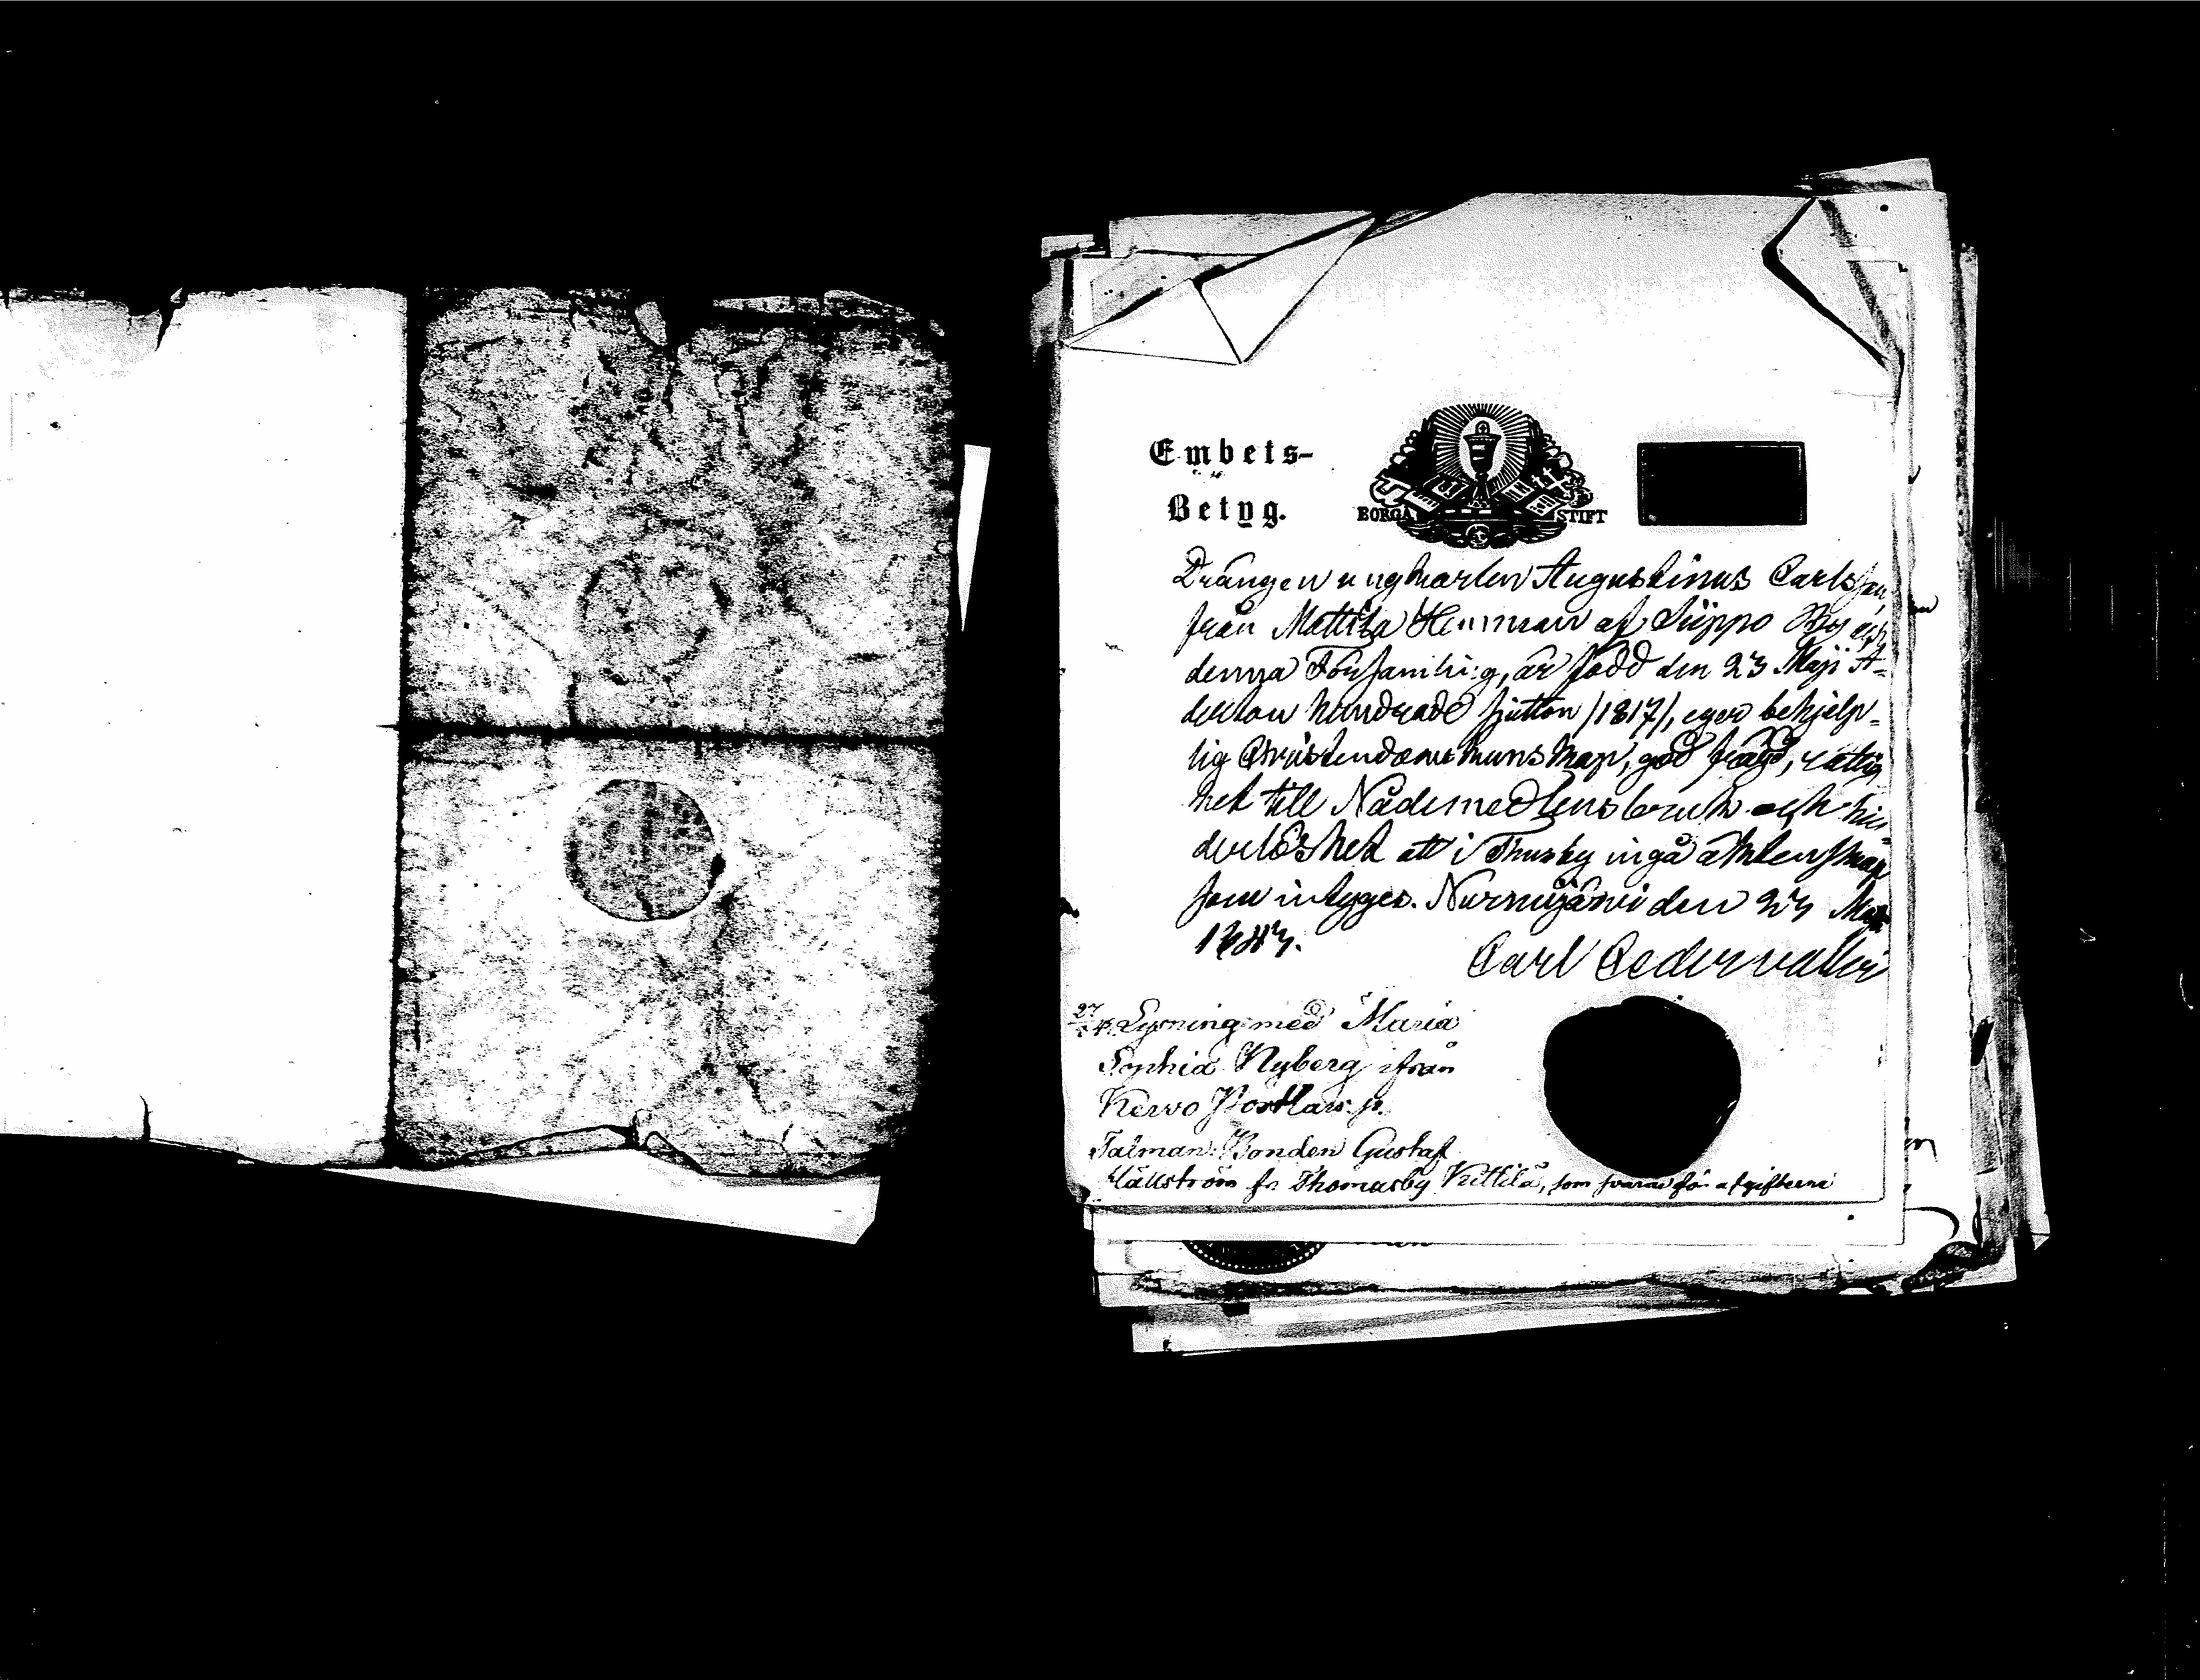 Embets-
Betyg.
BORGÅ STIFT
Drängen ungkarlen Augustinus Carlsson,
från Mattila Hemman af Siippo By och
denna Församling, är född den 23 Maji A-
derton hundrade sjutton /1817/, eger behjelp-
lig Christendoms kunskap, god frägd, rättig
het till Nådemedlens bruk och hin
derlöshet att i Thusby ingå äktenskap
som intygas. Nurmijärvi den
Carl Cedervaller
Lysning med Maria
Sophia Nyberg ifrån
Kervo
Talman: Bonden Gustaf
Hällström fr. Thomasby Kittilä, som svarar för afgifterne